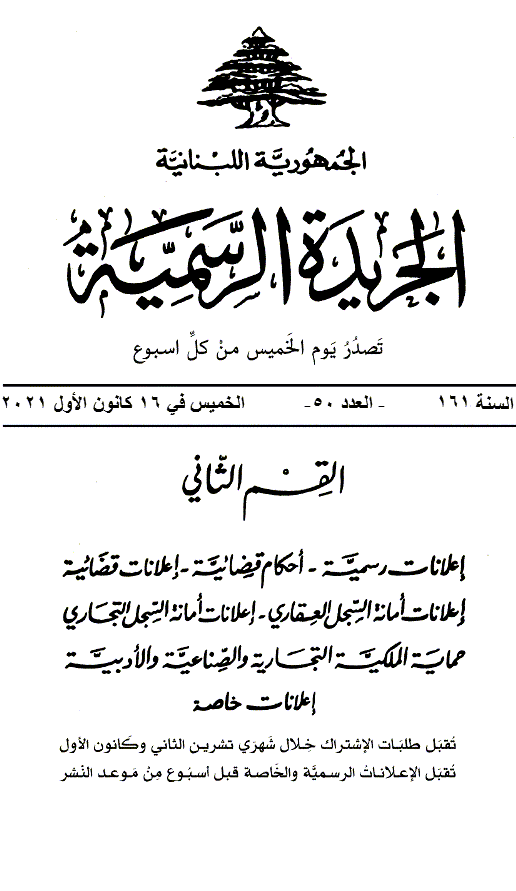 الجمهوريّة اللبنانيّة
الجريدة الرسميّة
تَصدُرُ يَوم الخَميس مِنْ كلِّ اسبوع
السنة ١٦١ - العدد ٥٠- الخميس في ١٦ كانون الأول ٢٠٢١
القِسْم الثّاني
إعلانات رسميّة - أحكام قضائيّة - إعلانات قضائية
إعلانات أمانة السّجل العقاري - إعلانات أمانة السّجل التجاري
حماية الملكيّة التجارية والصّناعيّة والأدبيّة
إعلانات خاصة
تُقبَل طلبَات الإشتراك خِلال شَهرَي تشرين الثاني وكَانون الأول
تُقبَل الإعلاناتُ الرسميَّة والخَاصة قبل أسبُوع مِنْ مَوعد النَشر